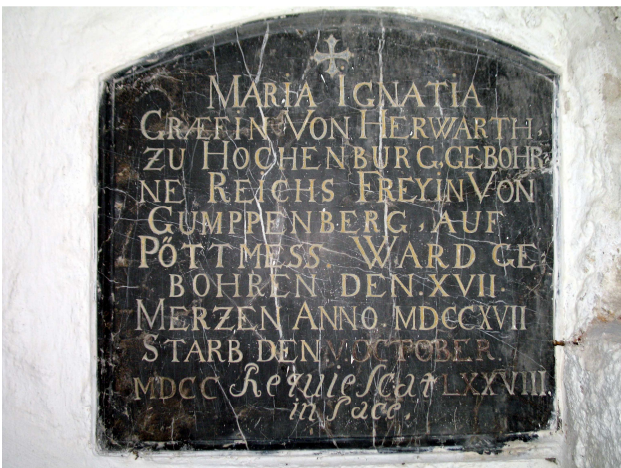 MARIA IGNATIA
GRÆFIN VON HERWARTH,
ZU HOCHENBURG, GEBOHR,
NE REICHS FREYIN VON
GUMPPENBERG, AUF
PŐTTMESS. WARD GE,
BOHREN DEN XVII
MERZEN ANNO. MDCCXVII
STARB DEN OCTOBER.
MDCC Requiescat LXXVIII
in Pace.